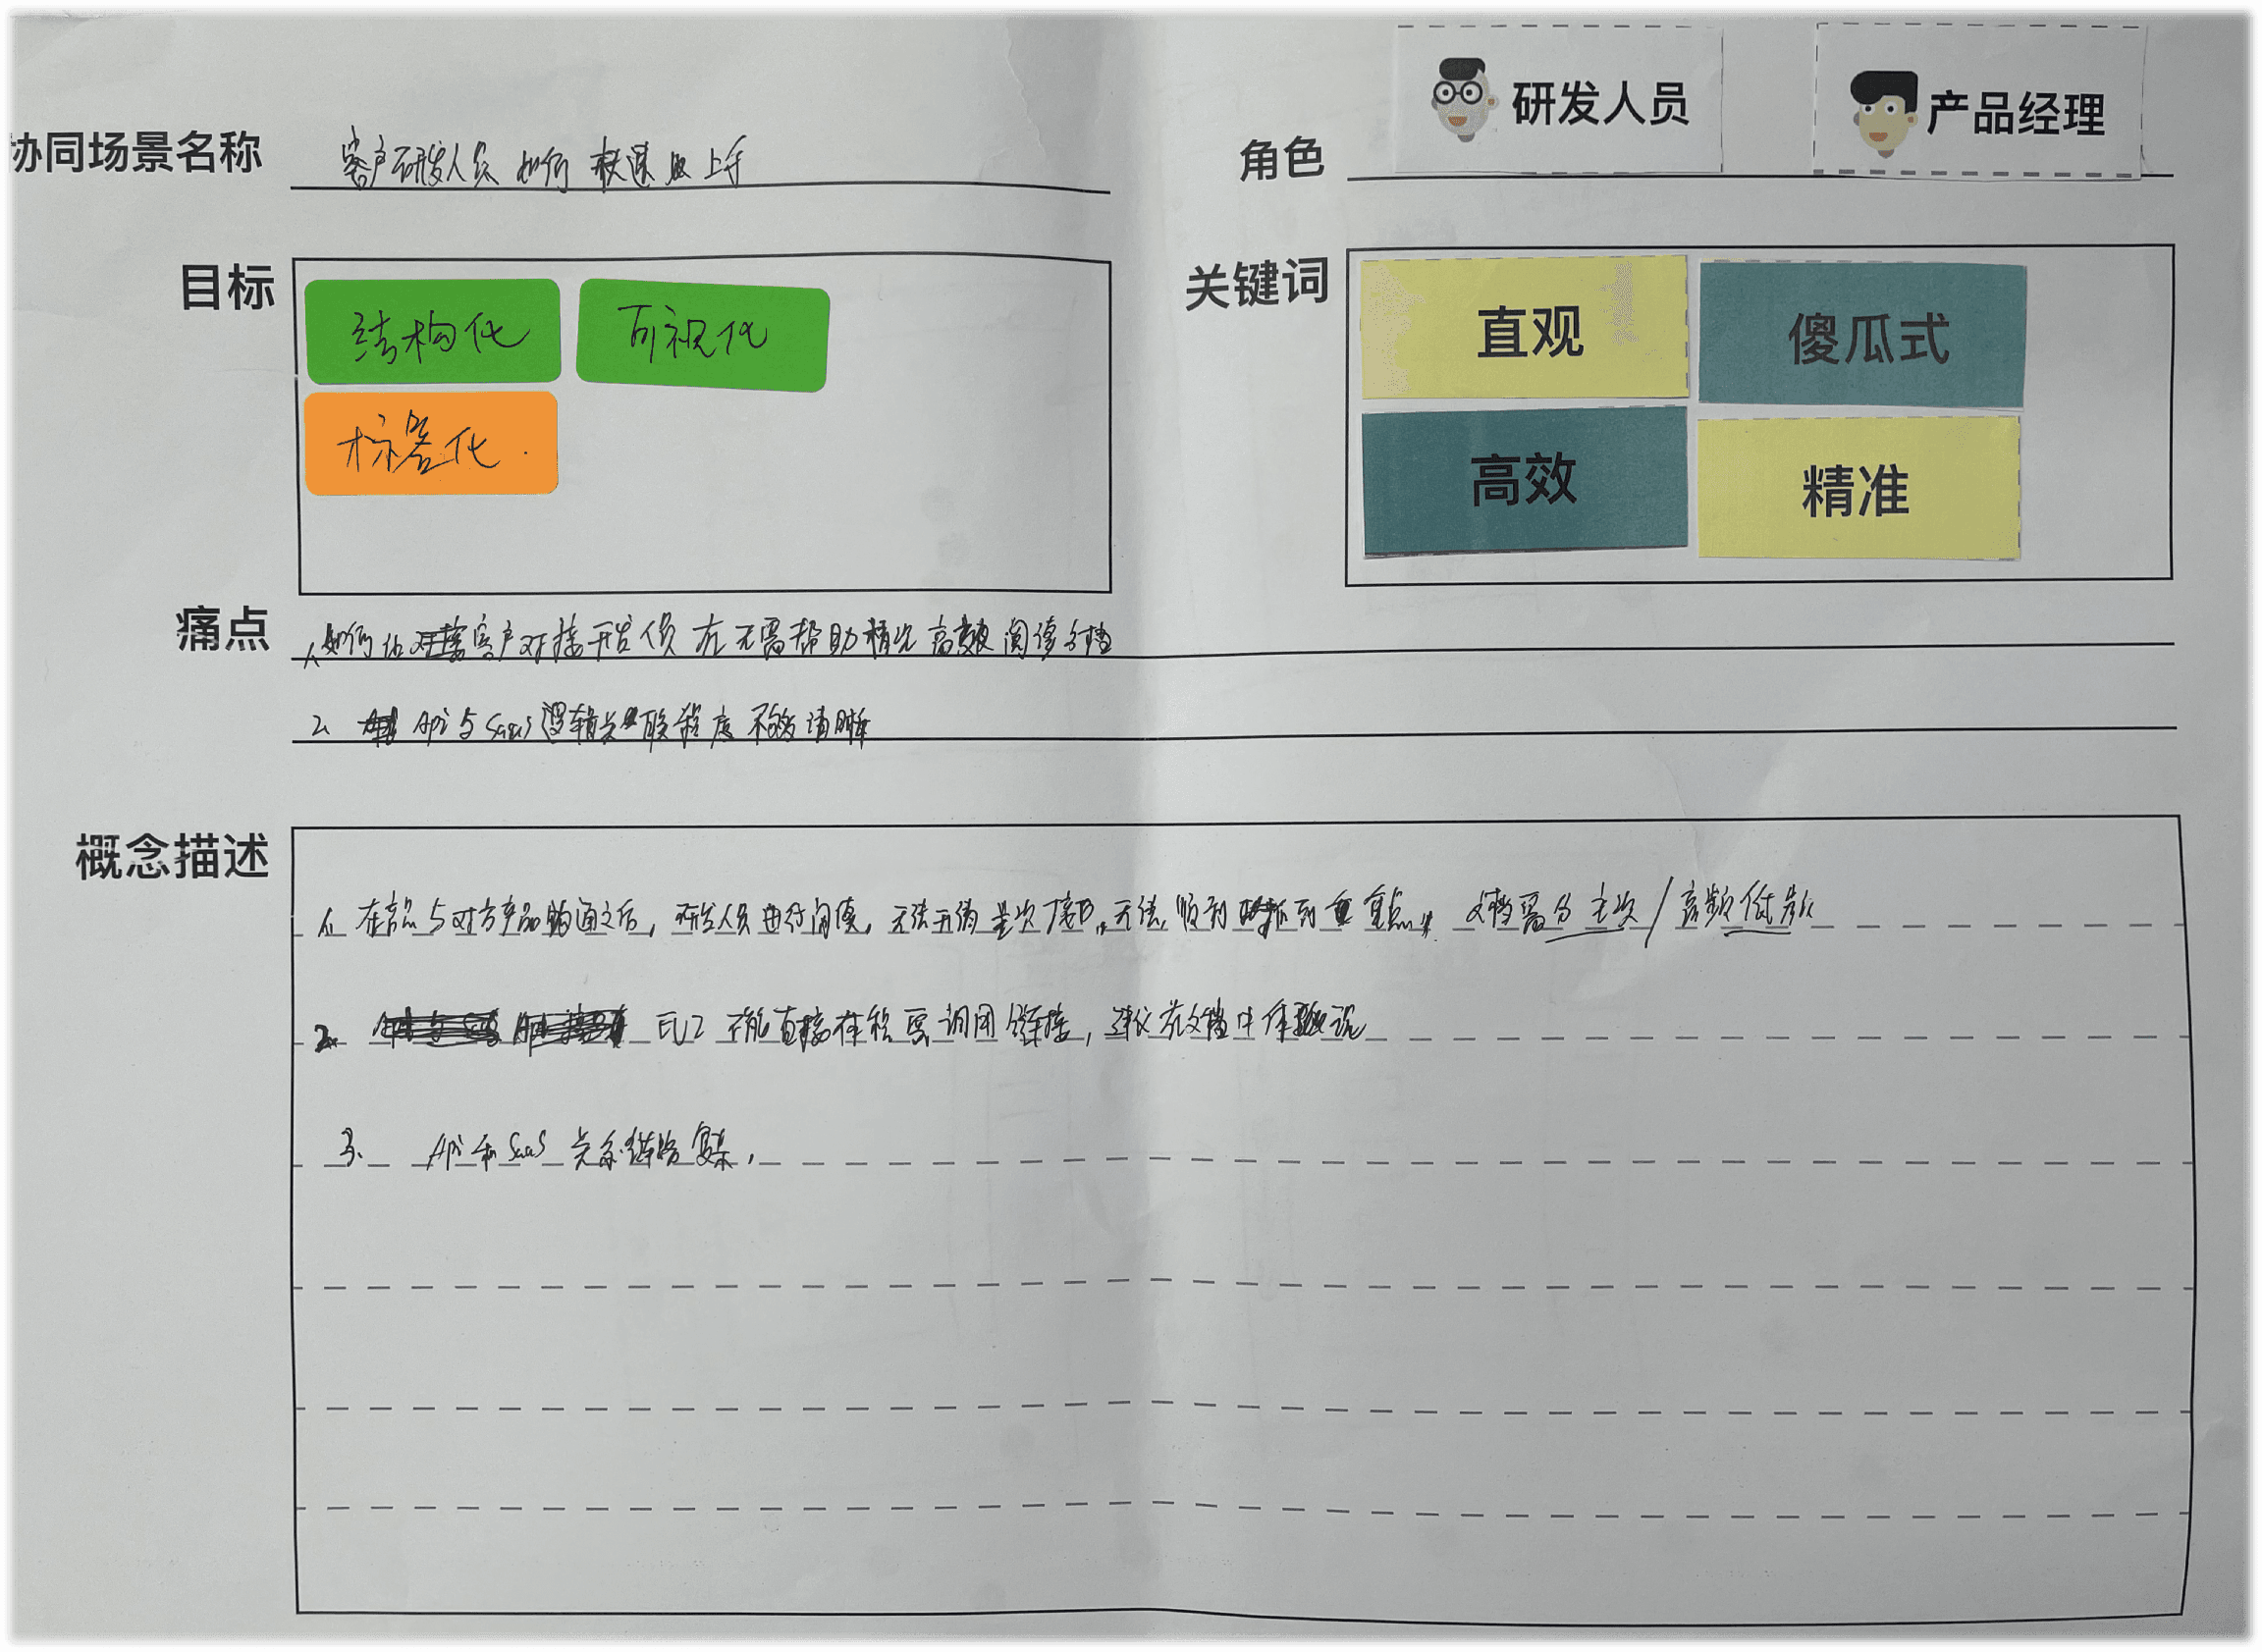 协同场景名称 客户研发人员 如何 快速 上手
角色 研发人员 产品经理
目标 结构化 可视化
标签化.
关键词 直观 傻瓜式
高效 精准
痛点 1. 如何让客户对接开发人员在无需帮助情况高效阅读文档
2. API与SaaS逻辑关联程度不够清晰
概念描述
1. 在前与对方产品沟通之后, 研发人员进行阅读, 无法弄清主次, 无法 抓到重点. 文档需分主次/高频低频
2. 不能直接在 需 闭链接, 建议在文档中体现
3. API和SaaS关系链路复杂,